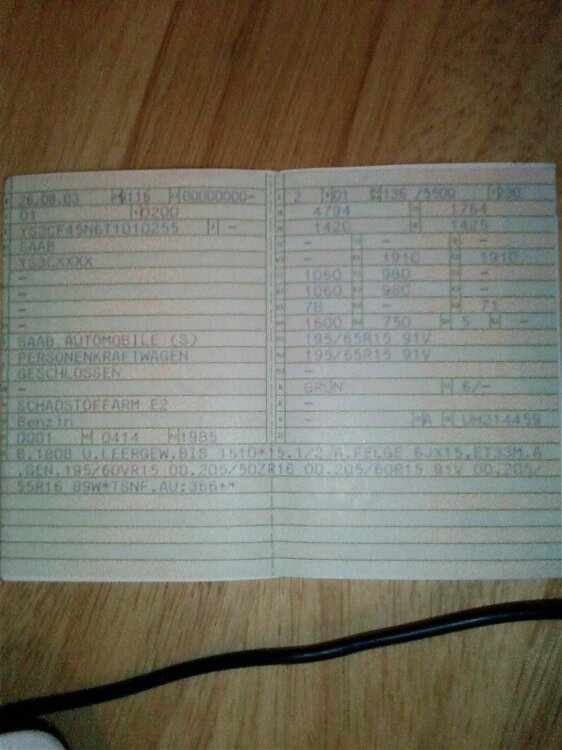 26.08.03 0116 00000000-
01 0200
SAAB
YS3CXXXX
-
-
-
-
SAAB AUTOMOBILE (S)
PERSONENKRAFTWAGEN
GESCHLOSSEN
-
SCHADSTOFFARM E2
Benzin
0001 0414 1985
2 01 136 /5500 230
4794 1764
1420 1425
- - -
- 1910 1910
1060 980 -
1060 980 -
78 - 71
1600 750 5 -
195/65R15 91V
195/65R15 91V
-
GRÜN 6/-
-
- A
B.1808 V.LEERGEW.BIS 1510*15.1/2 A.FELGE 6JX15,ET33M.A
.GEN.195/60VR15 OD.205/50ZR16 OD.205/60R15 91V OD.205/
55R16 89W*TSNF.AU:366**